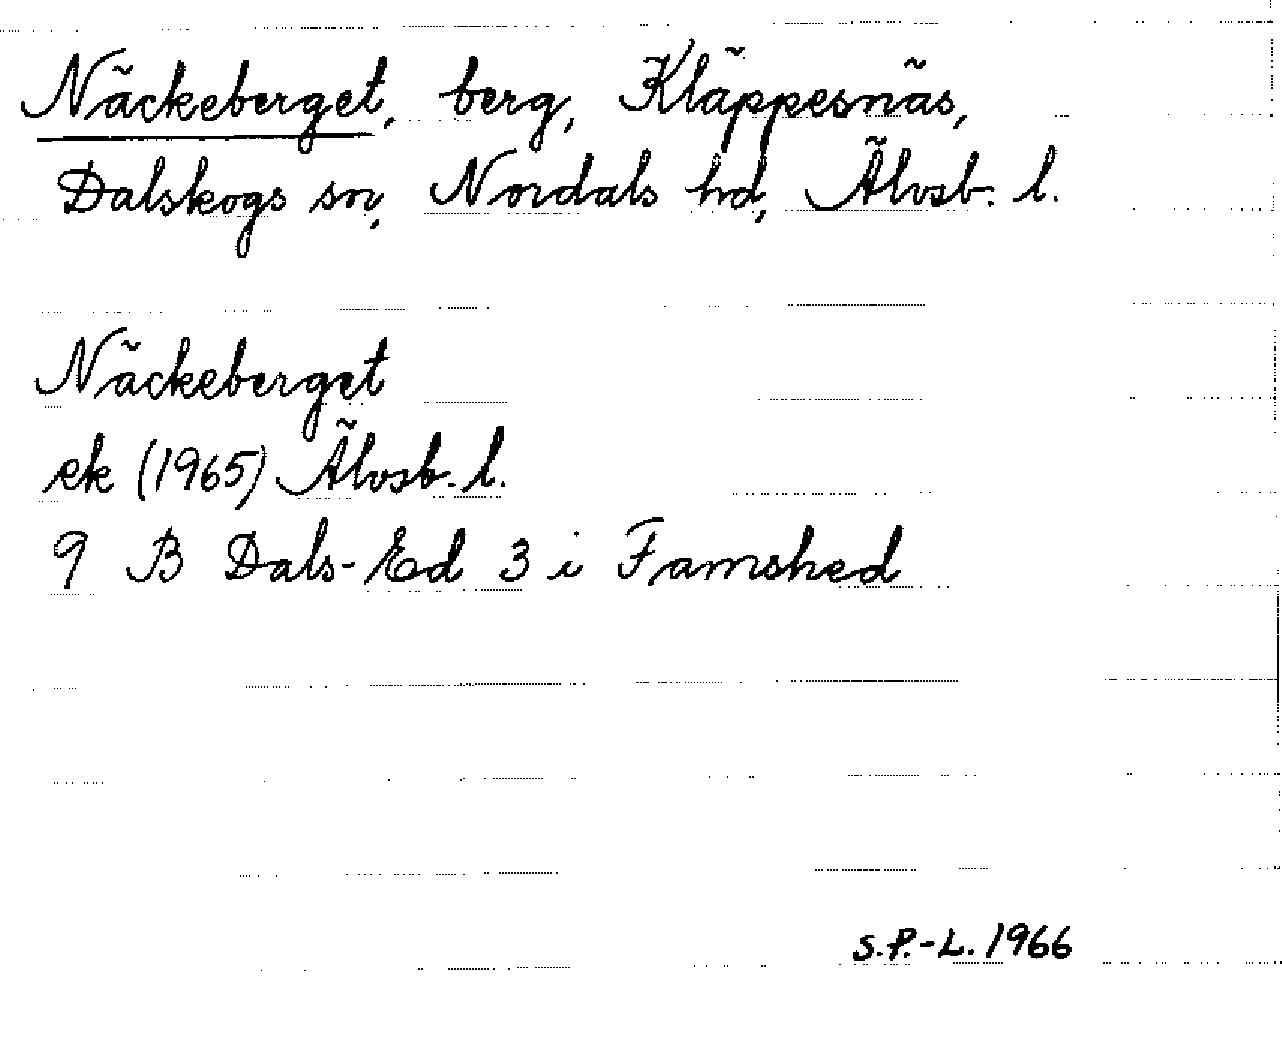 Näckeberget, berg, Kläppesnäs,
Dalskogs sn, Nordals hd, Älvsb. l.
Näckeberget
ek (1965) Älvsb. l.
9 B Dals-Ed 3 i Famshed
S.P.-L. 1966